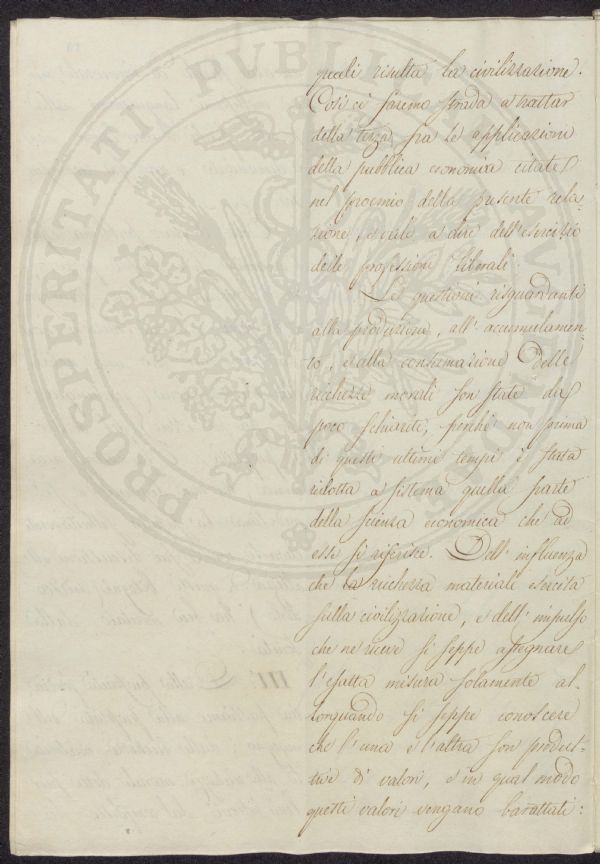 quali risulta la civilizzazione.
Così ci faremo strada a trattar
della terza fra le applicazioni
della pubblica economia citate
nel proemio della presente rela-
zione, e vale a dire dell'esercizio
delle professioni liberali.
Le questioni risguardanti
alla produzione, all'accumulamen-
to, e alla consumazione delle
ricchezze morali son state da
poco schiarite, perchè non prima
di questi ultimi tempi è stata
ridotta a sistema quella parte
della scienza economica che ad
esse si riferisce. Dell'influenza
che la ricchezza materiale esercita
sulla civilizzazione, e dell'impulso
che ne riceve si seppe assegnare
l'esatta misura solamente al-
lorquando si seppe conoscere
che l'una e l'altra son produt-
tive di valori, e in qual modo
questi valori vengano barattati:
PROSPERITATI PUBLICAE